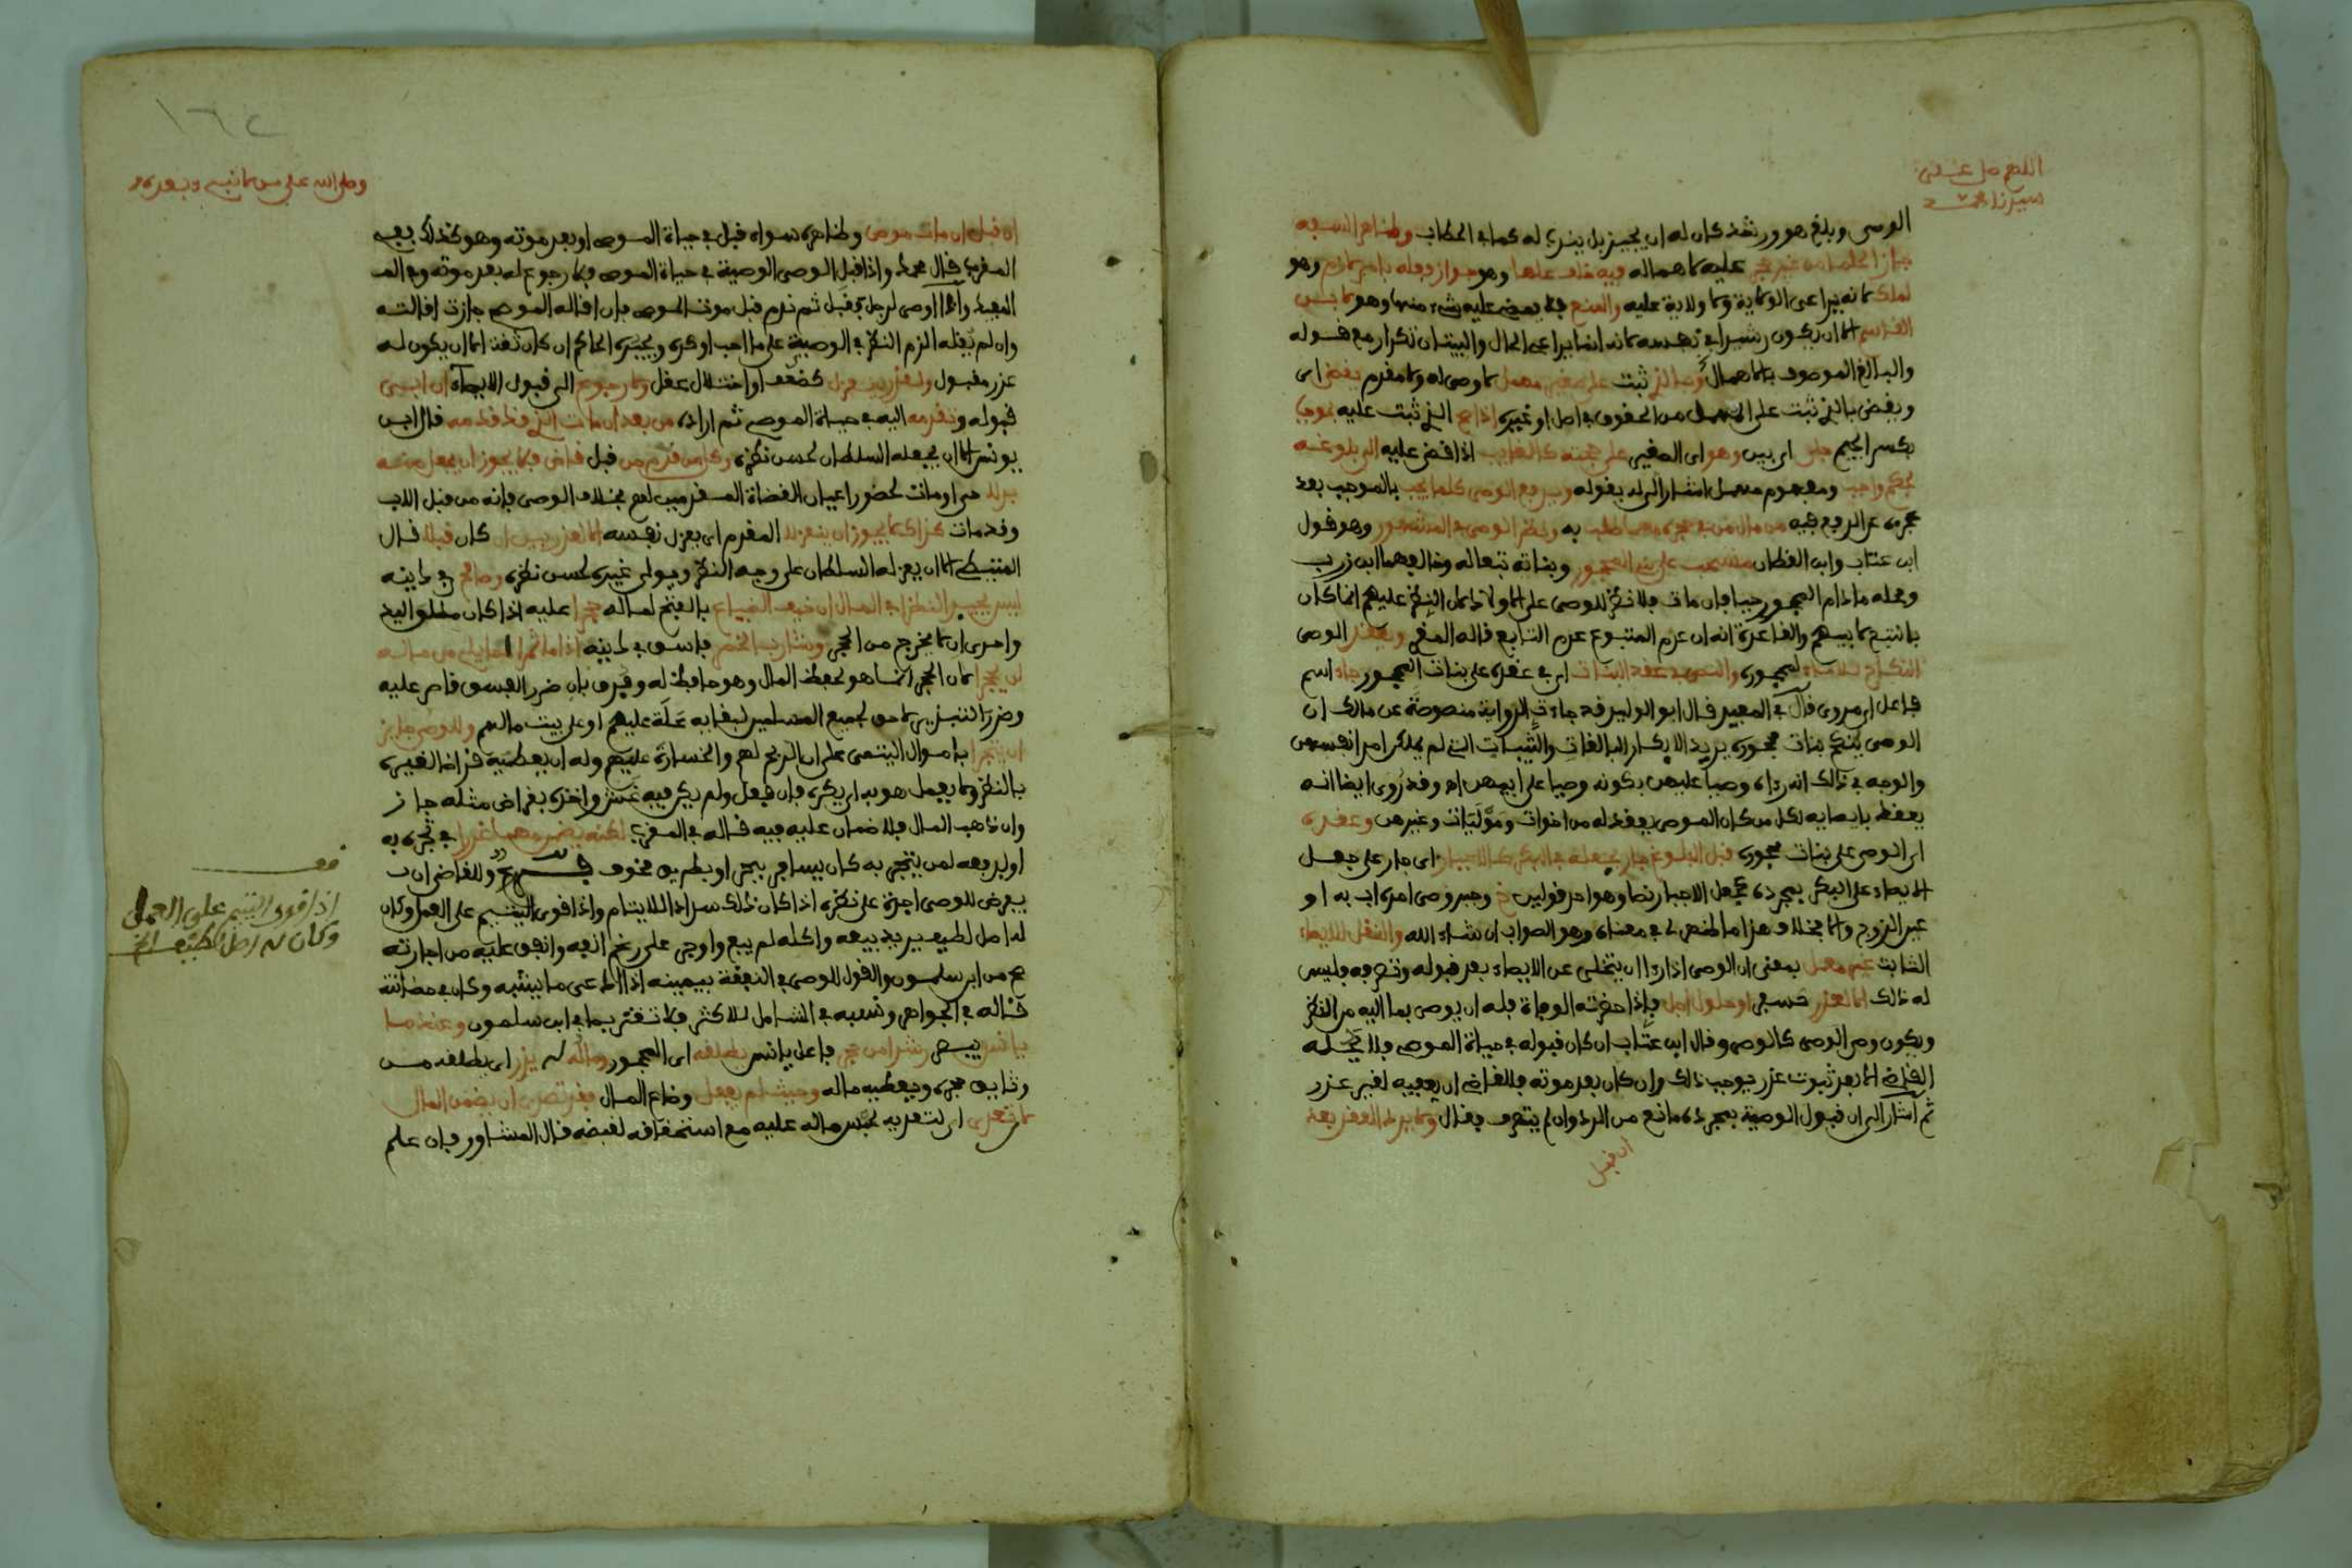 اللهم صل على
سيدنا محمد
الوصى وبلغ هو ورشد كان له ان يجيز بل ينبغي له كما في الحطاب وظاهر السفيه
عليه كاهماله فيه خلف علما وهو جواز فعله وهو
لملك كانه يراعى الولاية ولا ولاية عليه والمنع فلا يمضى عليه شىء منها وهو
القاسم الا ان يكون رشيدا في نفسه كانه انما يراعى الحال والبيتان تكرار مع قوله
والبالغ الموصوف بالاهمال ثبت على صغير مهمل لا وصى له ولا مقدم يقضى اى
ويقضى بالذي ثبت على المهمل من الحقوق في اصل او غيره اذا الذي ثبت عليه
بكسر الجيم جلى اى بين وهو اى الصغير على حجته كالغايب اذا قضى عليه الى بلوغه
بحكم واجب ومفهوم مهمل اشار اليه بقوله ويرفع الوصى كلما يجب بالموجب بعد
عن الرفع فيه من مال من في حجره مهما طلب به ونظر الوصى في المشهور وهو قول
ابن عتاب وابن القطان منسحب على بنى المحجور وبناته تبعا له وخالفهما ابن زرب
ومحله مادام المحجور حيا فان مات فلا نظر للوصى على الاولاد لان النظر عليهم انما كان
بالتبع لابيهم والقاعدة انه ان عدم المتبوع عدم التابع قاله المقرى ويعقد الوصى
النكاح للاماء لمحجوره والنص في عقد البنات اى في عقده على بنات المحجور جاء اسم
فاعل اى مروى قال في المفيد قال ابو الوليد قد جاءت الرواية منصوصة عن مالك ان
الوصى ينكح بنات محجوره يريد الابكار البالغات والثيبات التي لم يملكن امر انفسهن
والوجه في ذلك انه رءاه وصيا عليهن بكونه وصيا على ابيهن اه وقد روى ايضا انه
يعقد بايصايه لكل من كان الموصى يعقد له من اخوات وموليات وغيرهن وعقده
اى الوصى على بنات محجوره قبل البلوغ جار بجعله في البكر كالاجبار اى جار على جعل
الايصاء على البكر بمجرده كجعل الاجبار نصا وهو احد قولين خ وجبر وصى امره اب به او
عين الزوج والا فخلاف هذا ما ظهر لي في معناه وهو الصواب ان شاء الله والنقل للايصاء
الثابت غير معمل بمعنى ان الوصى اذا اراد ان يتخلى عن الايصاء بعد قبوله وتصرفه فليس
له ذلك الا لعذر كسفر او حلول اجل فاذا حضرته الوفاة فله ان يوصى بما اليه من النظر
ويكون وصى الوصى كالوصى وقال ابن عتاب ان كان قبوله في حياة الموصى فلا يحله
القاضي الا بعد ثبوت عذر يوجب ذلك وان كان بعد موته فللقاضي ان يعفيه لغير عذر
ثم اشار الى ان قبول الوصية بمجرده مانع من الرد وان لم يتصرف فقال ولا يرد العقد بعد
ان قبل
١٦٢
وصلى الله على من لا نبي بعده
ان قبل ان مات موص وظاهره سواء قبل في حياة الموصى او بعد موته وهو كذلك ففي
المقرب قال محمد واذا قبل الوصى الوصية في حياة الموصى فلا رجوع له بعد موته وفي
المفيد واذا اوصى لرجل فقبل ثم ندم قبل موت الموصى فان اقاله الموصى جازت اقالته
وان لم يقله الزم النظر في الوصية على ما احب او كره ويجبره الحاكم ان كان ثقة الا ان يكون له
عذر مقبول كضعف او اختلال عقل ولا رجوع الى قبول الايصاء ان ابى
قبوله وتقدمه اليه في حياة الموصى ثم اراده من بعد ان مات الذي قد قدمه قال ابن
يونس الا ان يجعله السلطان لحسن نظره وكل من قدم من قبل قاض فلا يجوز ان يجعل منه
بدلا حى او مات لحضور اعيان القضاة المقدمين لهم بخلاف الوصى فانه من قبل الاب
وقد مات كذاك لا يجوز ان ينعزلا المقدم اى يعزل نفسه الا لعذر بين ان كان قبلا قال
المتيطى الا ان يعزله السلطان على وجه النظر ويولى غيره لحسن نظره وصالح في دينه
ليس يجيد النظر في المال ان خيف الضياع بالفتح لماله حجرا عليه اذا كان مطلق اليد
واحرى ان لا يخرج من الحجر وشارب الخمر فاسق في دينه اذا ما ثمرا لما يلى من ماله
لن يحجرا لان الحجر انما هو لحفظ المال وهو حافظ له وفرق بان ضرر الفسق قاصر عليه
وضرر التبذير لاحق لجميع المسلمين لبقايه علة عليهم او على بيت مالهم وللوصى جايز
ان يتجرا باموال اليتمى على ان الربح لهم والخسارة عليهم وله ان يعطيه قراضا لغيره
بالنظر ولا يعمل هو به اى يكره فان فعل ولم يكن فيه غش واخذه بقراض مثله جاز
وان ذهب المال فلا ضمان عليه فيه قاله في المقرب لكنه يضمن مهما غررا في تجره به
او لدفعه لمن يتجر به كان يسافر ببحر او بطريق مخوف فرع وللقاضي ان
يفرض للوصى اجرة على نظره اذا كان ذلك سدادا للايتام واذا قوى اليتيم على العمل وكان
له اصل لطيف يريد بيعه واكله لم يبع واوجر على رغم انفه وانفق عليه من اجارته
صح من ابن سلمون والقول للوصى في النفقة بيمينه اذا ادعى ما يشبه وكان في حضانته
قاله في الجواهر ونسبه في الشامل للاكثر فلا تغتر بما في ابن سلمون وعندما
يانس يبصر رشدا من حجر فاعل يانس يطلقه اى المحجور وماله له يذر اى يطلقه من
وثايق حجره ويعطيه ماله وحيث لم يفعل وضاع المال فقد تصدى ان يضمن المال
لان تعدى اى لتعديه بحبس ماله عليه مع استحقاقه لقبضه قال المشاور فان علم
قف
اذا قوى اليتيم على العمل
وكان له اصل لطيف الخ